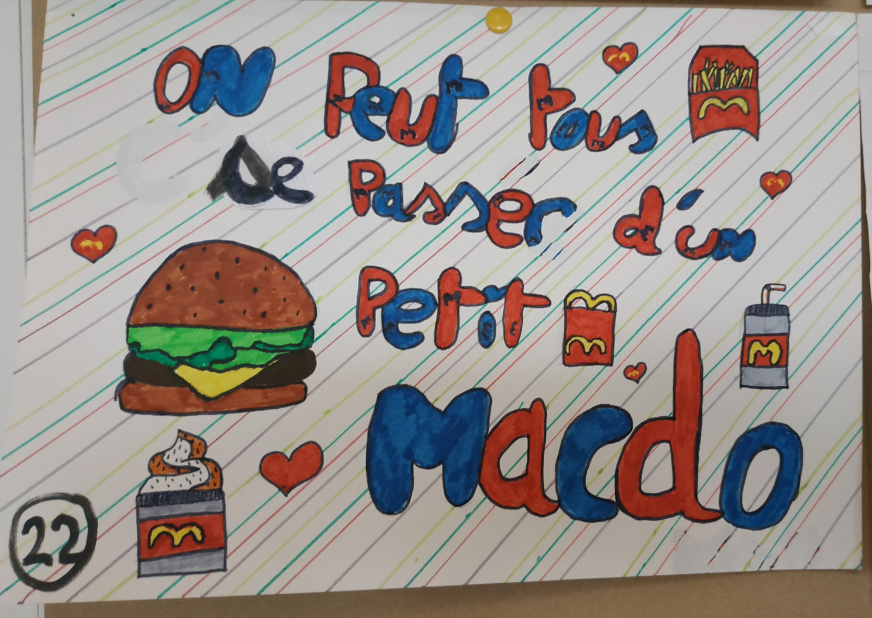 ON Peut tous
Se Passer d'un
Petit
Macdo
22